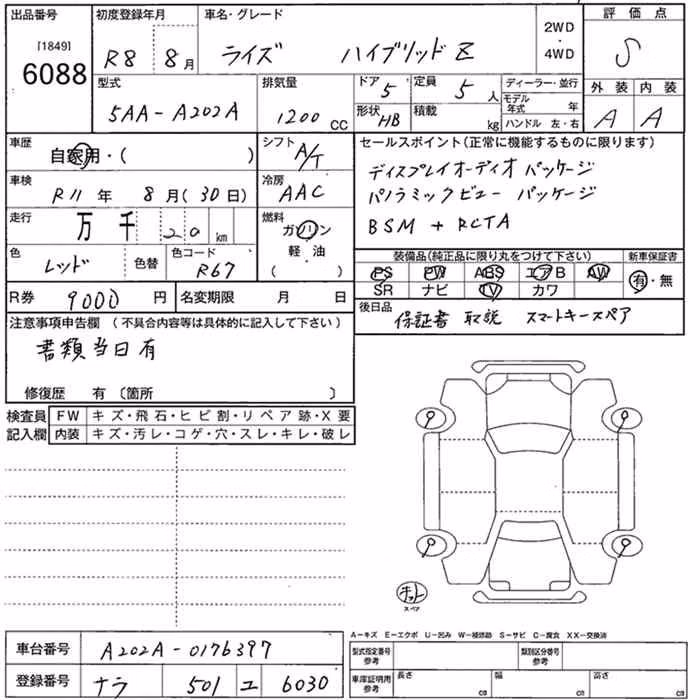 出品番号 初度登録年月 車名・グレード 2WD・4WD 評価点
[1849] 6088 R8 8月 ライズ ハイブリッド Z S
型式 排気量 ドア 5 定員 5人 ディーラー・並行 外装 内装
5AA-A202A 1200 CC 形状 HB 積載 kg モデル年式 年 A A
ハンドル 左・右
車歴 自家用・( ) シフト A/T セールスポイント(正常に機能するものに限ります)
ディスプレイオーディオ パッケージ
車検 R11年 8月(30日) 冷房 AAC パノラミックビュー パッケージ
走行 万 千 20 km 燃料 ガソリン BSM + RCTA
軽油
( )
色 レッド 色替 色コード R67 装備品(純正品に限り丸をつけて下さい) 新車保証書
PS PW ABS エアB AW 有・無
SR ナビ TV カワ
R券 9000円 名変期限 月 日 後日品 保証書 取説 スマートキースペア
注意事項申告欄 (不具合内容等は具体的に記入して下さい)
書類当日有
修復歴 有 〔箇所 〕
検査員 FW キズ・飛石・ヒビ割・リペア跡・X要
記入欄 内装 キズ・汚レ・コゲ・穴・スレ・キレ・破レ
スペア
A-キズ E-エクボ U-凹み W-補修跡 S-サビ C-腐食 XX-交換済
車台番号 A202A-0176397 型式指定番号 参考 類別区分番号 参考
登録番号 ナラ 501 ユ 6030 車庫証明用 参考 長さ cm 幅 cm 高さ cm